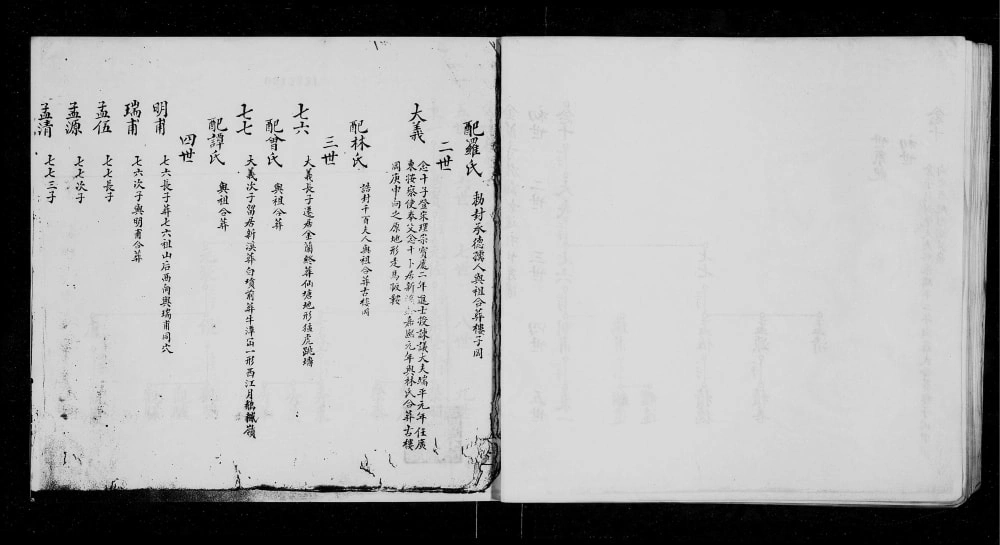 配羅氏 勅封承德孺人與祖合葬樓子岡
二世
大義 念千子登宋理宗寶慶二年進士授諫議大夫端平元年任廣
東按察使奉父念千卜居新溪嘉熙元年與林氏合葬古樓
岡庚申向之原地形走馬販鞍
配林氏 誥封千百夫人與祖合葬古樓岡
三世
七六 大義長子遷居金蘭終葬仙塘地形猛虎跳墻
配曾氏 與祖合葬
七七 大義次子留居新溪葬白墳前葬牛潭笛一形西江月嶺
配譚氏 與祖合葬
四世
明甫 七六長子葬七六祖山后西向與瑞甫同穴
瑞甫 七六次子與明甫合葬
孟伍 七七長子
孟源 七七次子
孟清 七七三子